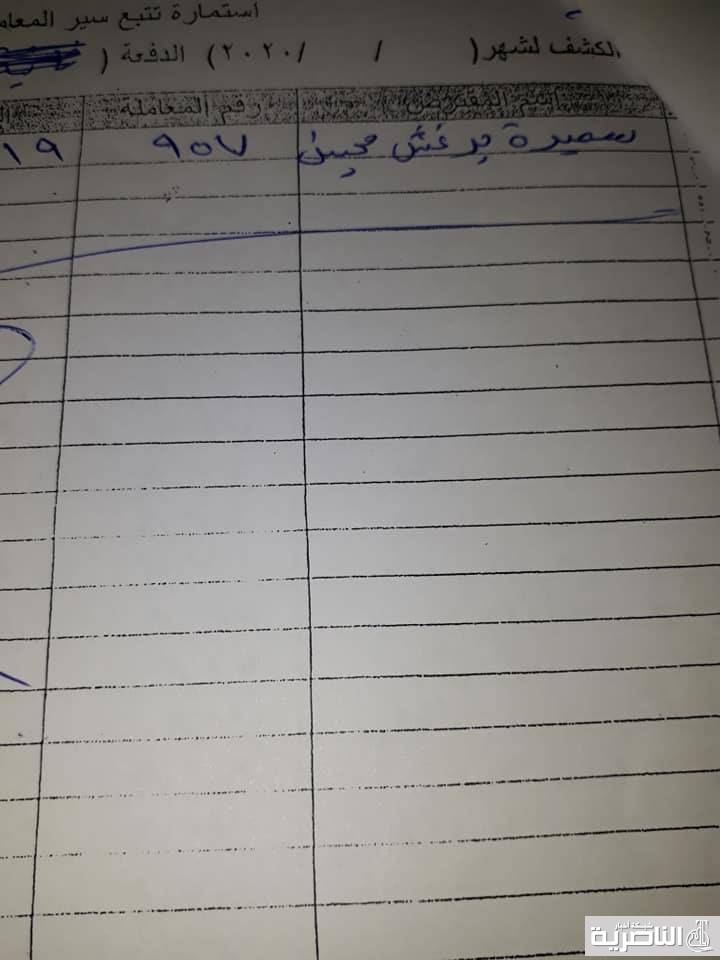 استمارة تتبع سير المعام
الكشف لشهر ( / / ٢٠٢٠ ) الدفعة (
اسم المقترض رقم المعاملة
سميرة برغش محيسن ٩٥٧ ١٩
شبكة اخبار
الناصرية